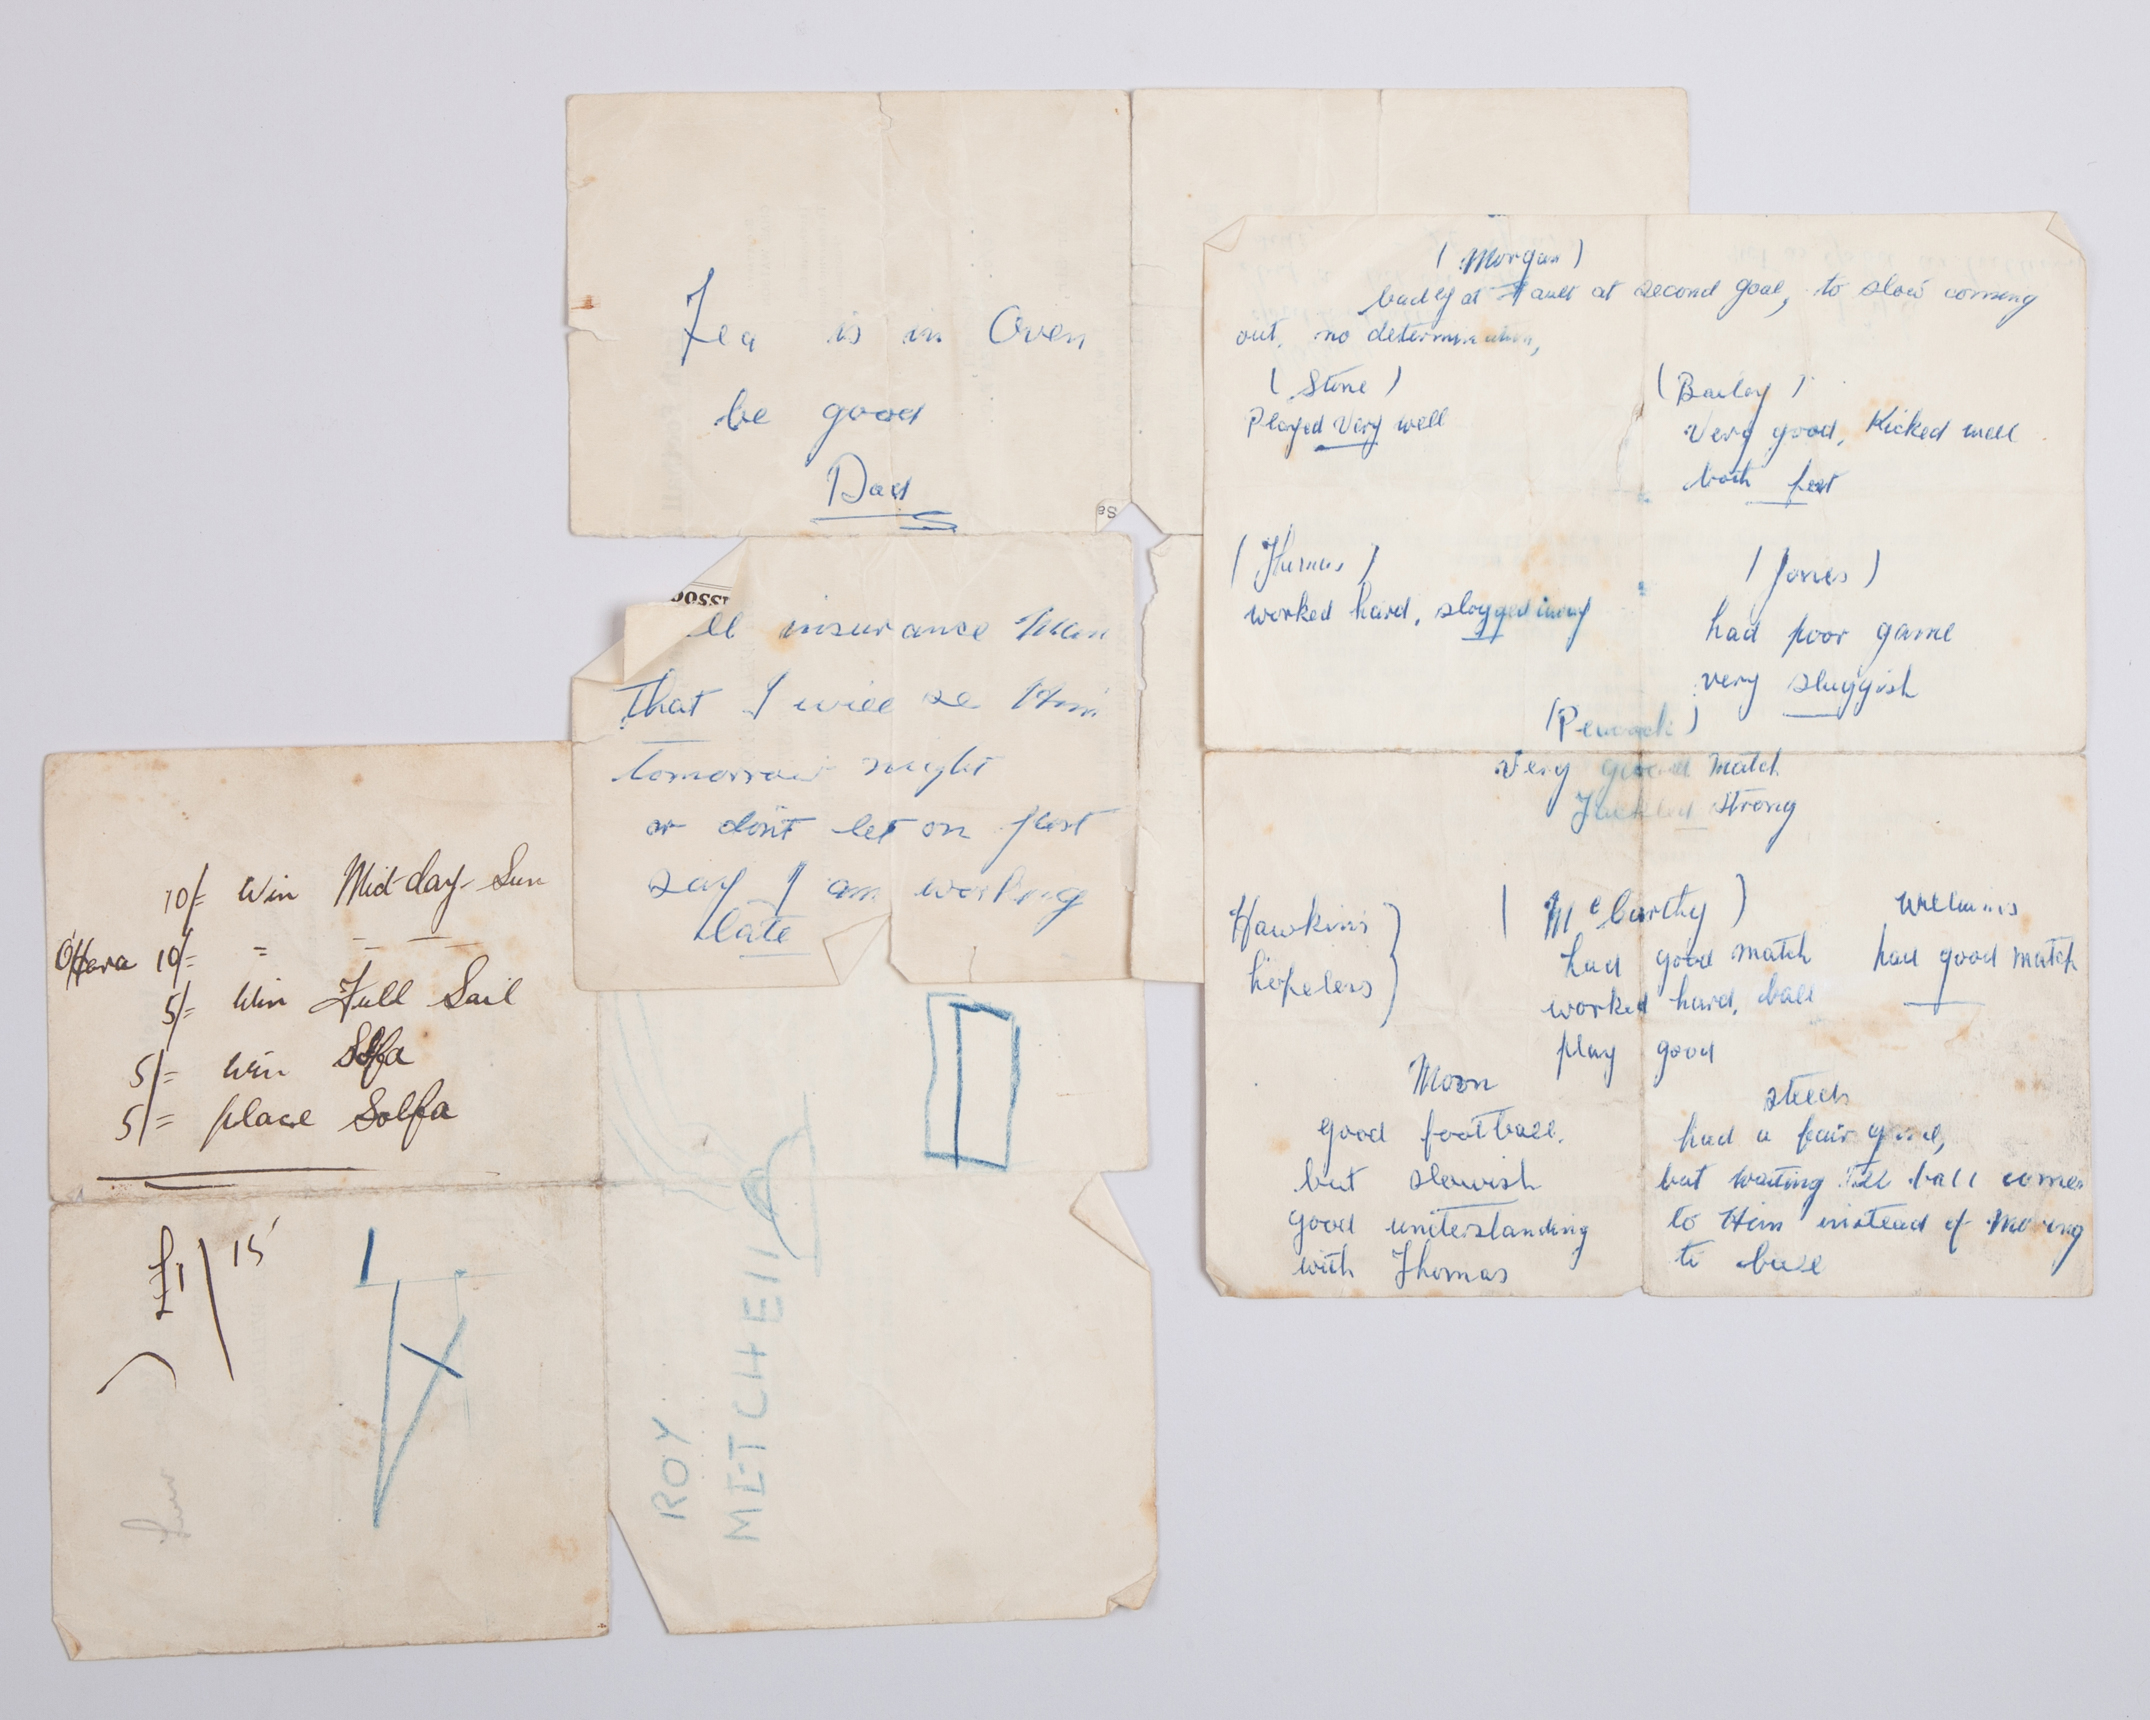 Tea is in Oven
be good
Dad
Se
ssoc
ll insurance Man
That I will se Him
tomorrow night
or don't let on just
say I am working
late
10/= Win Mid-day-Sun
O'Hara 10/= = — — —
5/= Win Full Sail
5/= Win Solfa
5/= place Solfa
£1/15
ROY
METCHEll
(Morgan)
badly at Fault at second goal, to slow coming
out, no determination,
(Stone)
Played Very well
(Bailey)
Very good, Kicked well
both feet
(Thomas)
worked hard, slogged away
(Jones)
had poor game
very sluggish
(Peacock)
Very good match
Tackled strong
Hawkins
hopeless
(McCarthy)
had good match
worked hard, ball
play good
Williams
had good match
Moon
good football,
but slowish
good understanding
with Thomas
steeds
had a fair game,
but waiting till ball comes
to Him instead of Moving
to ball